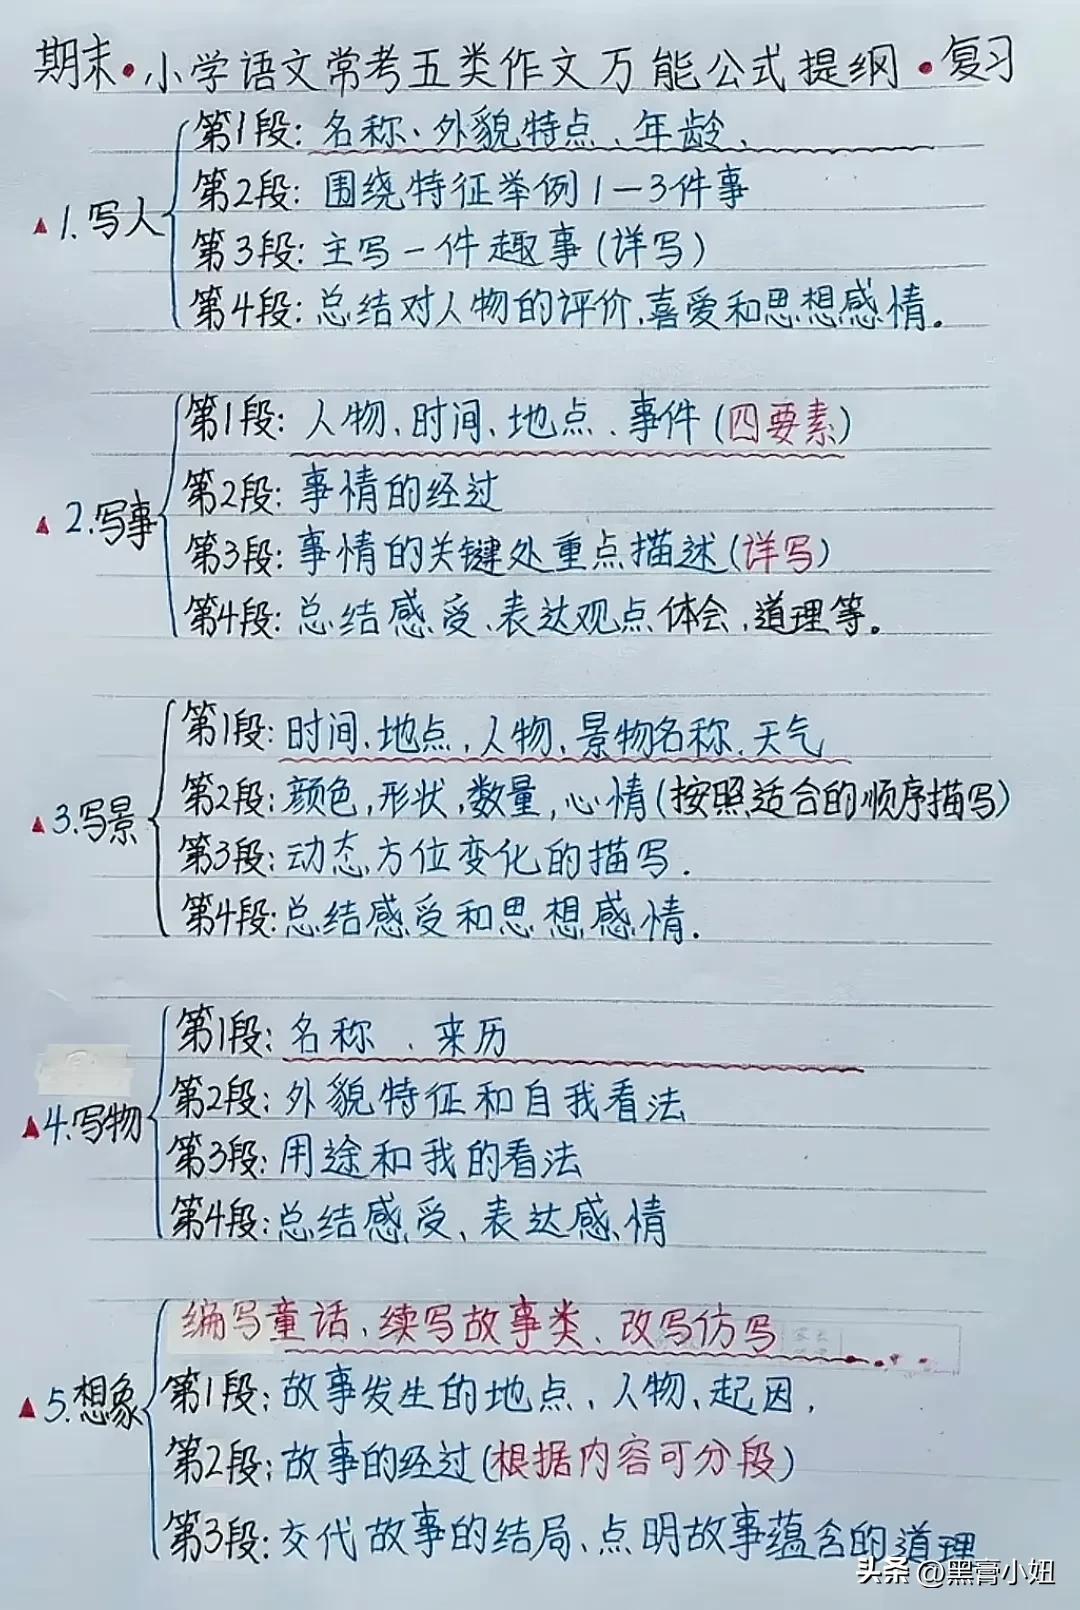 期末·小学语文常考五类作文万能公式提纲·复习
第1段:名称、外貌特点、年龄、
第2段:围绕特征举例1—3件事
1.写人
第3段:主写一件趣事(详写)
第4段:总结对人物的评价、喜爱和思想感情。
第1段:人物、时间、地点、事件(四要素)
第2段:事情的经过
2.写事
第3段:事情的关键处重点描述(详写)
第4段:总结感受、表达观点体会、道理等。
第1段:时间、地点、人物、景物名称、天气
第2段:颜色,形状,数量,心情(按照适合的顺序描写)
3.写景
第3段:动态方位变化的描写.
第4段:总结感受和思想感情.
第1段:名称、来历
第2段:外貌特征和自我看法
4.写物
第3段:用途和我的看法
第4段:总结感受、表达感情
编写童话、续写故事类、改写仿写
第1段:故事发生的地点、人物、起因,
5.想象
第2段:故事的经过(根据内容可分段)
第3段:交代故事的结局、点明故事蕴含的道理
头条 @黑膏小妞